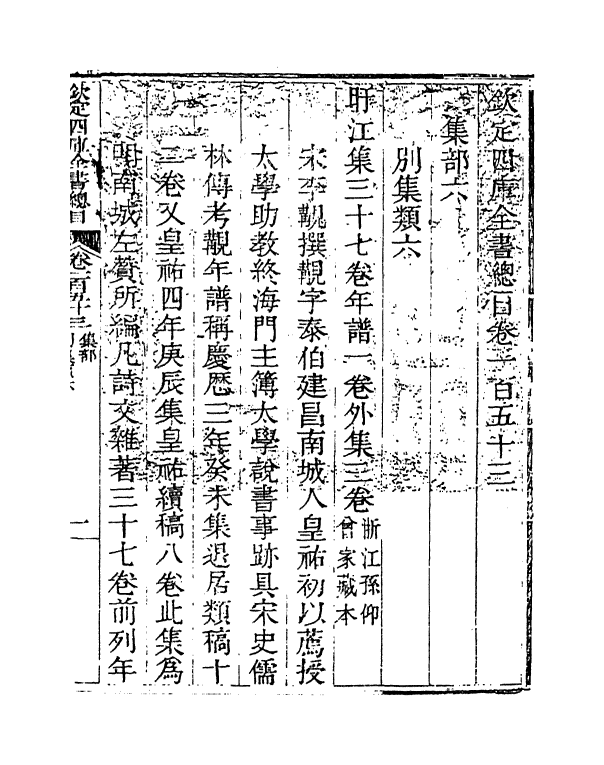 欽定四庫全書總目卷一百五十三
集部六
別集類六
盱江集三十七卷年譜一卷外集三卷浙江孫仰曾家藏本
宋李覯撰覯字泰伯建昌南城人皇祐初以薦授
太學助教終海門主簿太學說書事跡具宋史儒
林傳考覯年譜稱慶歷三年癸未集退居類稿十
二卷又皇祐四年庚辰集皇祐續稿八卷此集爲
明南城左贊所編凡詩文雜著三十七卷前列年
欽定四庫全書總目 卷一百五十三 集部 別集類六 一